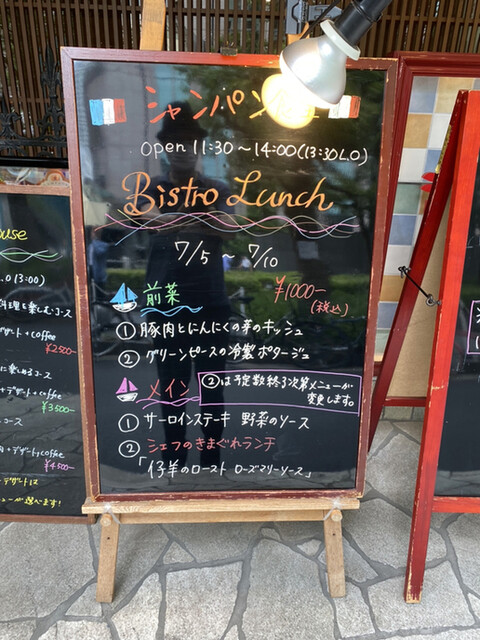 シャンパン
open 11:30～14:00(13:30L.O)
Bistro Lunch
7/5 ～ 7/10
¥1000-
(税込)
前菜
① 豚肉とにんにくの芽のホッシュ
② グリーンピースの冷製ポタージュ
メイン
②は予定数終了次第メニューが
変更します。
① サーロインステーキ 野菜のソース
② シェフのきまぐれランチ
「仔羊のロースト ローズマリーソース」
ouse
.O 13:00)
料理を楽しむコース
デザート+coffee
¥2,500-
に楽しめるコース
+デザート+coffee
¥3,500-
+デザート+coffee
¥4,500-
+デザート12
メニューが選べます!